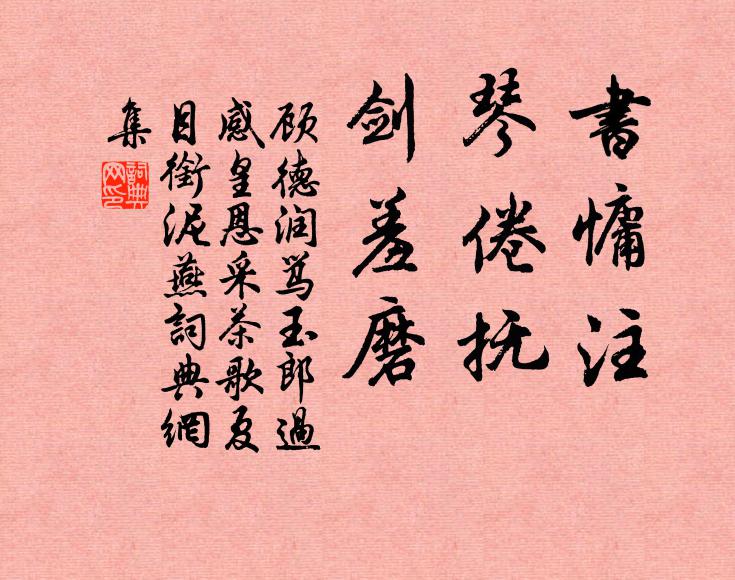 書慵注
琴倦抚
剑羞磨
顾德润骂玉郎過
感皇恩采茶歌夏
目銜泥燕詞典網
集
詞典
网印